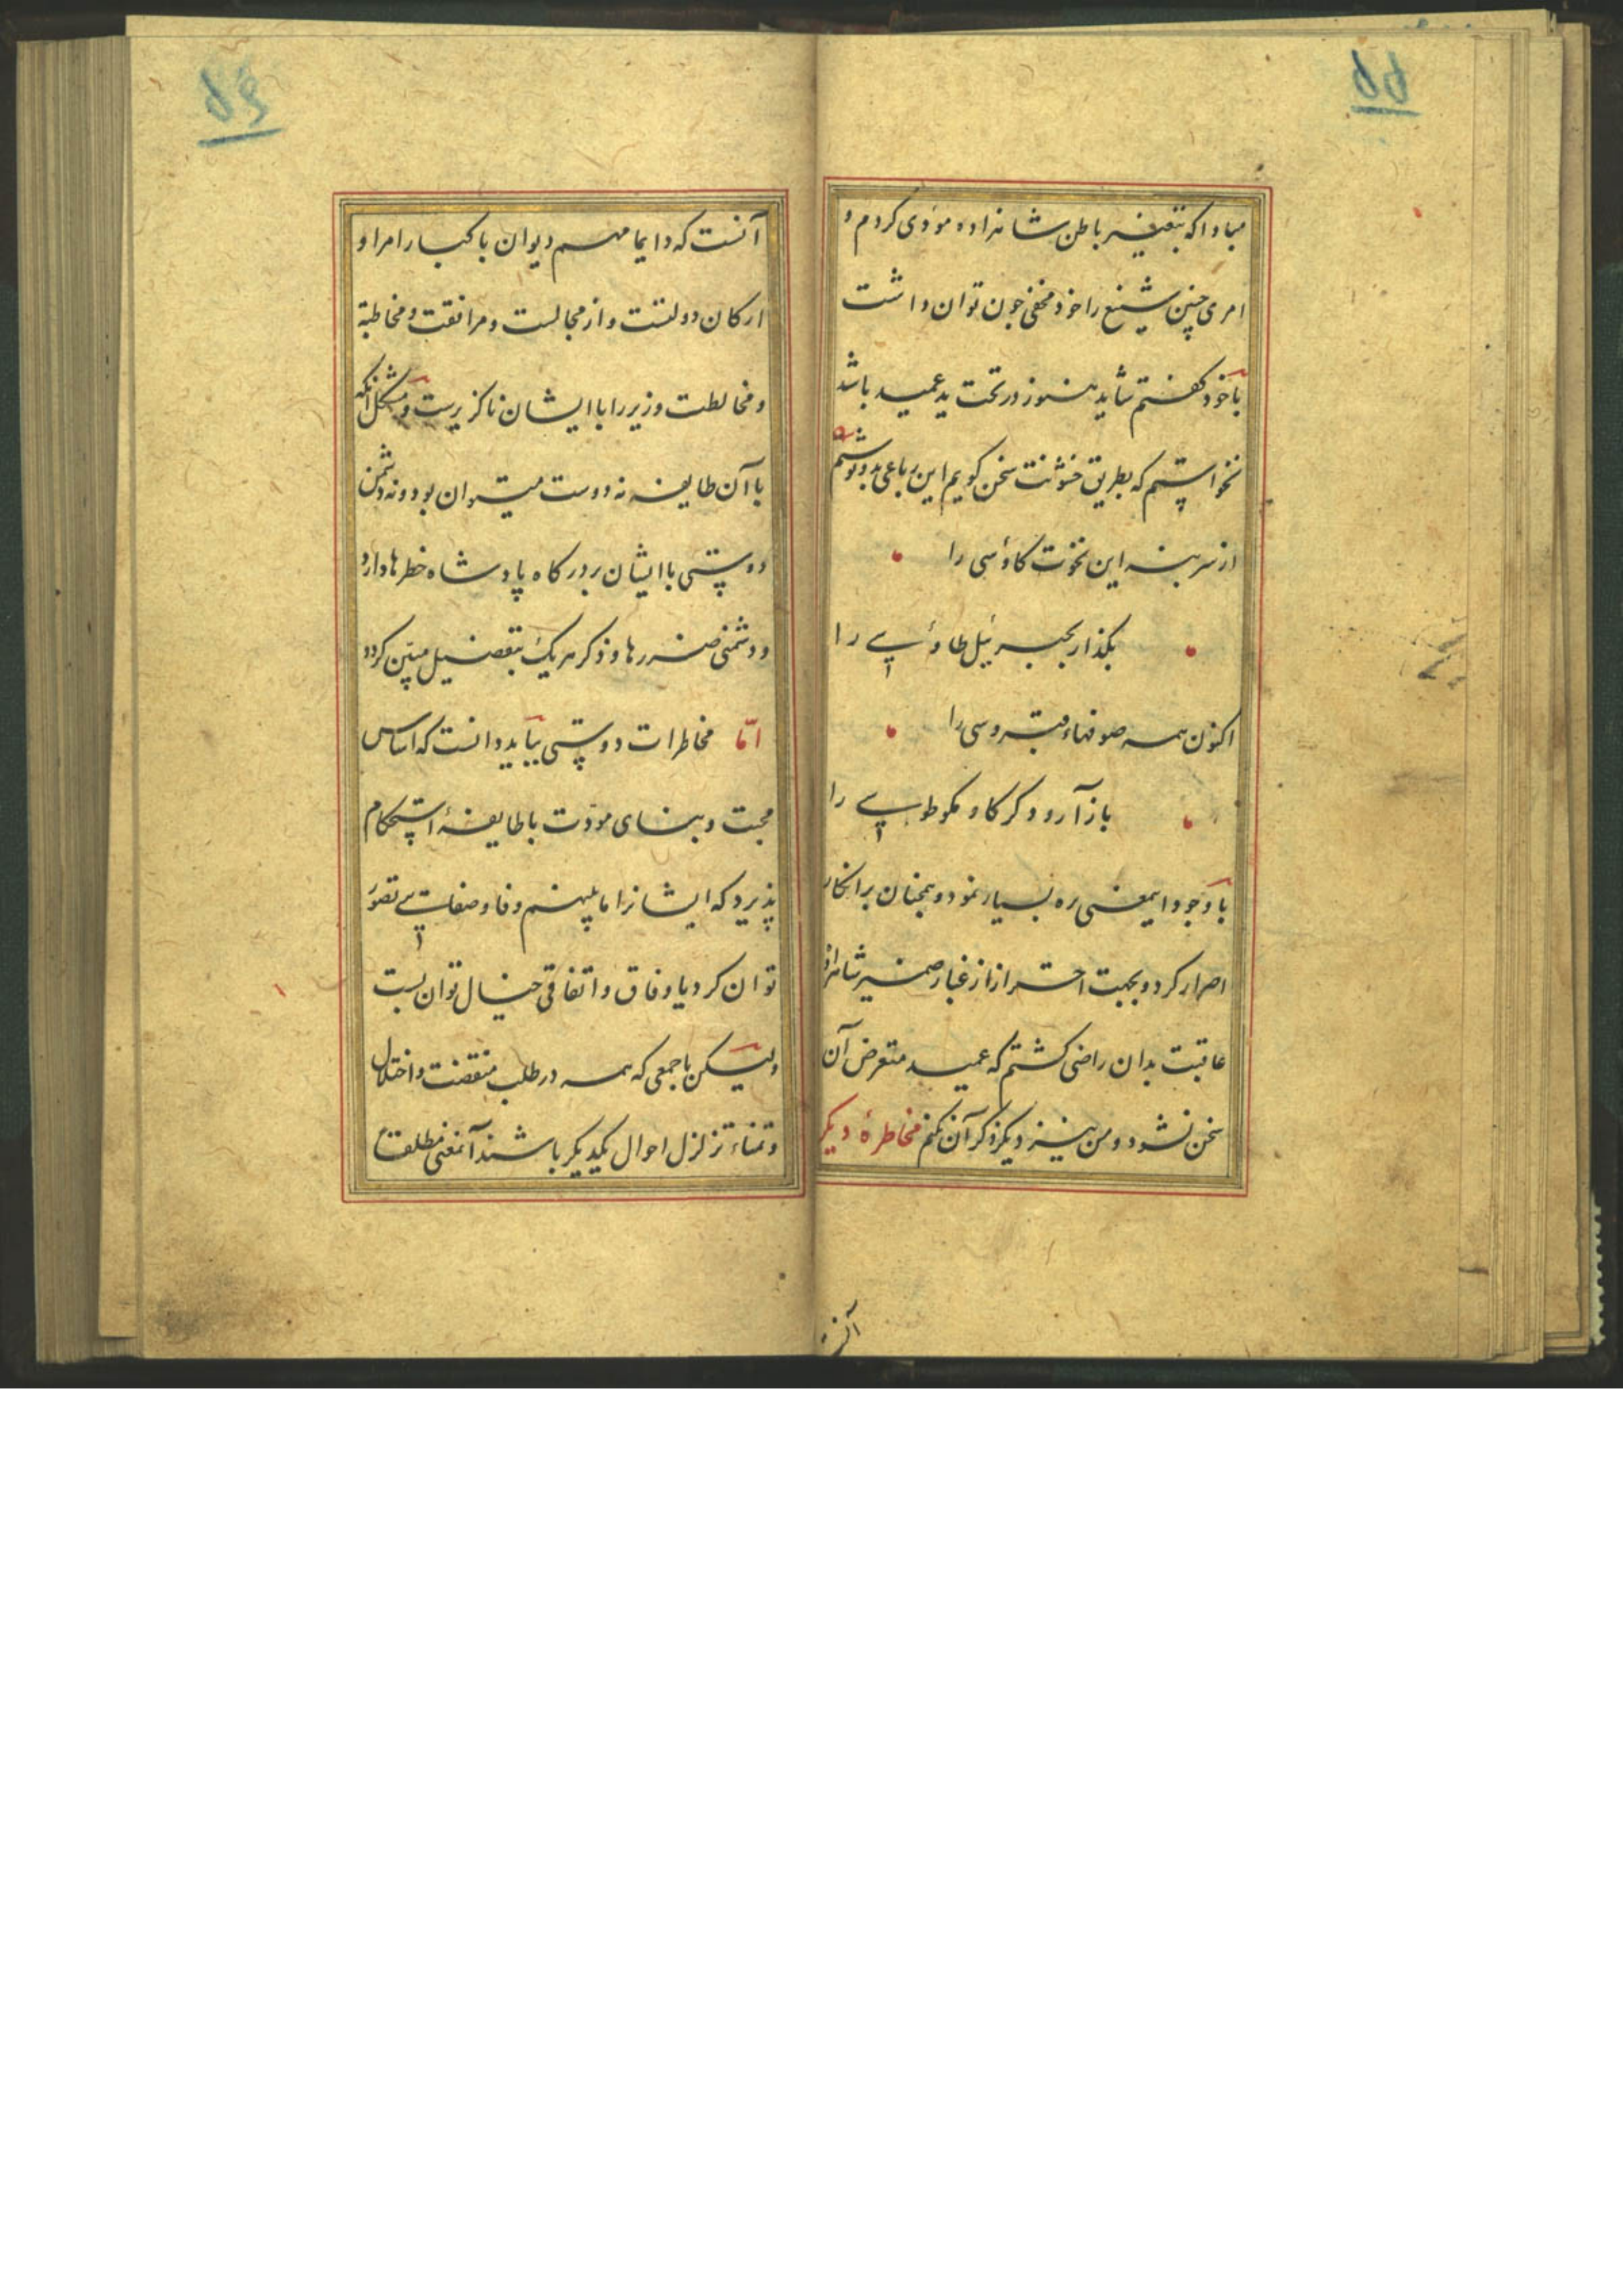 ۵۵
مبادا که بتغییر باطن شاهزاده مودی کردم و
امری چنین شنیع را خود مخفی جون توان داشت
باخود کفتم شاید هنوز در تحت ید عمید باشد
نخواستم که بطریق خشونت سخن کویم این رباعی بدو نوشتم
از سر بنه این نخوت کاوسی را
بکذار بجبرئیل طاوسی را
اکنون همه صوفهاء قبروسی را
باز آر و دکر کاو مکو طوسی را
با وجود ایمعنی ره بسیار نمود و همچنان بر انکار
اصرار کرد و بجهت احتراز از غبار ضمیر شاهزاده
عاقبت بدان راضی کشتم که عمید متعرض آن
سخن نشود و من نیز دیکر ذکر آن نکنم مخاطرهٔ دیکر
۵۶
آنست که دایما مهم دیوان با کبار امرا و
ارکان دولتست و از مجالست و مرافقت و مخاطبة
و مخالطت وزیر را با ایشان ناکزیرست و مشکل آنکه
با آن طایفه نه دوست میتوان بود و نه دشمن
دوستی با ایشان بر درکاه پادشاه خطرها دارد
و دشمنی ضررها و ذکر هریک بتفصیل مبیّن کردد
امّا مخاطرات دوستی بباید دانست که اساس
محبت و بنای مودّت با طایفهٔ استحکام
پذیرد که ایشانرا ما بینهم وفا و صفایی تصوّر
توان کرد یا وفاق و اتفاقی خیال توان بست
ولیکن با جمعی که همه در طلب منقصت و اختلال
و تمناء تزلزل احوال یکدیکر باشند آنمعنی مطلقا